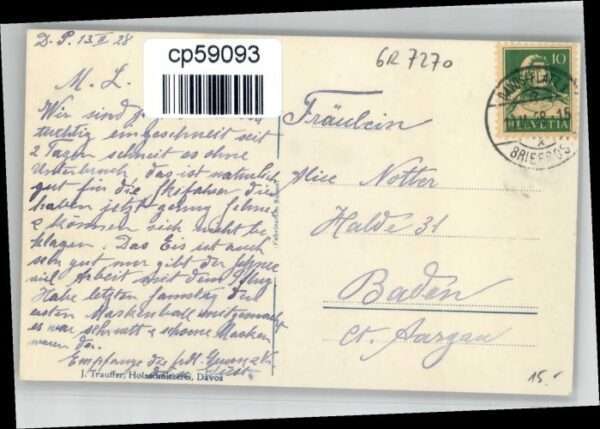 D. P. 13. II 28
cp59093
6R 7270
M. L.
Wir sind
tüchtig eingeschneit seit
2 Tagen schneit es ohne
Unterbruch, das ist natürlich
gut für die Skifahrer, die
haben jetzt genug Schnee
& können sich nicht be
klagen. Das Eis ist auch
sehr gut nur gibt der Schnee
viel Arbeit mit dem
Habe letzten Samstag den
ersten Maskenball
es war schnatt & schöne Masken
waren da.
Empfange die frdl.
J. Trauffer, Holzschnitzerei, Davos
10
HELVETIA
BRIEFBOS
Fräulein
Alice Notter
Halde 31
Baden
Ct. Aargau
15.-